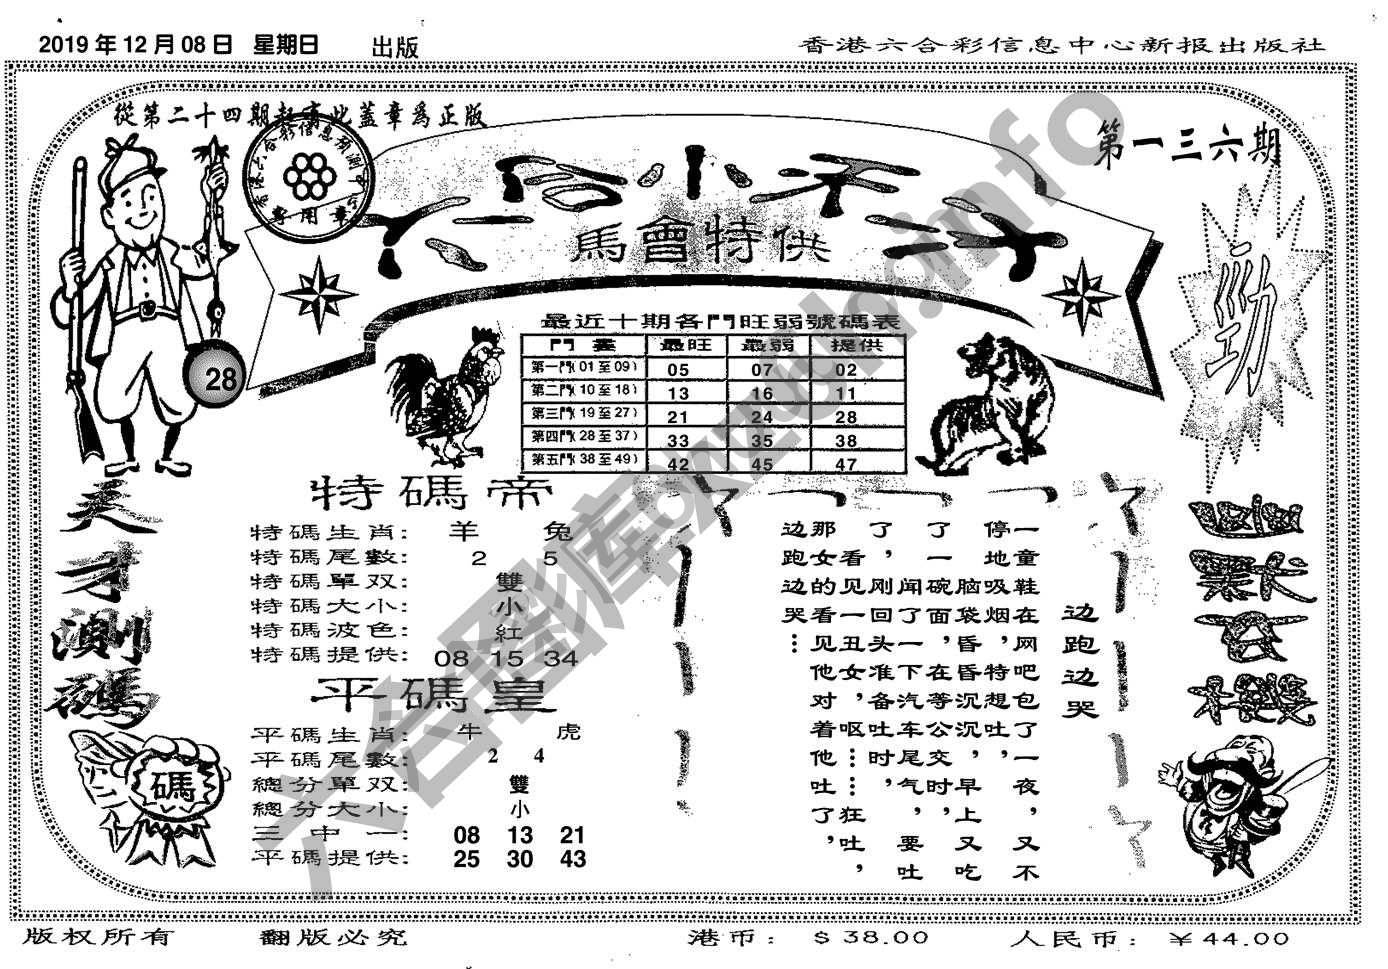 2019年12月08日 星期日 出版
香港六合彩信息中心新报出版社
從第二十四期起寄此蓋章爲正版
第一三六期
馬會特供
勁
28
最近十期各門旺弱號碼表
門 最旺 最弱 提供
第一門(01至09) 05 07 02
第二門(10至18) 13 16 11
第三門(19至27) 21 24 28
第四門(28至37) 33 35 38
第五門(38至49) 42 45 47
天才測碼
碼
特碼帝
特碼生肖: 羊 兔
特碼尾數: 2 5
特碼單双: 雙
特碼大小: 小
特碼波色: 紅
特碼提供: 08 15 34
平碼皇
平碼生肖: 牛 虎
平碼尾數: 2 4
總分單双: 雙
總分大小: 小
三中一: 08 13 21
平碼提供: 25 30 43
边跑边哭
一童鞋在网吧包了一夜，又不
停地吸烟，特想吐，
脑袋昏昏沉沉，早上又吃
了一碗面，在等公交时，
闻了一下汽车尾气，要吐
了，刚回头准备吐时，
看见一丑女，呕……狂吐，
那女的看见他对着他吐了，
边跑边哭…
版权所有 翻版必究 港币：$38.00 人民币：¥44.00